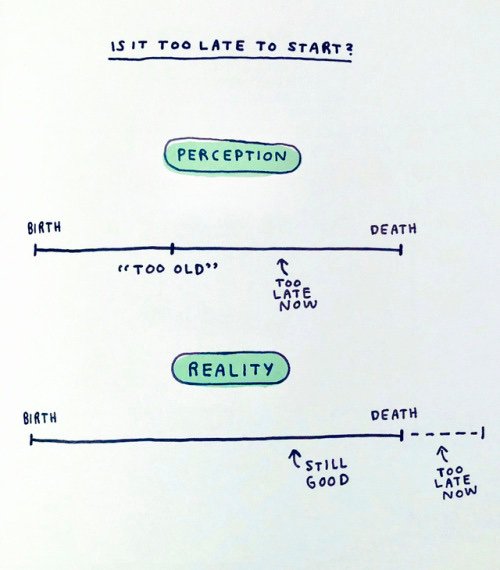 IS IT TOO LATE TO START?
PERCEPTION
BIRTH
DEATH
"TOO OLD"
TOO
LATE
NOW
REALITY
BIRTH
DEATH
STILL
GOOD
TOO
LATE
NOW